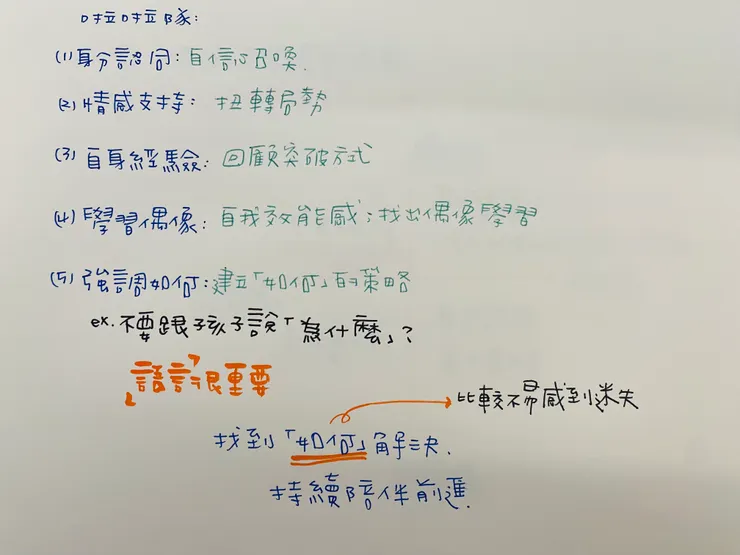 啦啦隊：
(1)身分認同：自信心召喚.
(2)情感支持：扭轉局勢
(3)自身經驗：回顧突破方式
(4)學習偶像：自我效能感；找出偶像學習
(5)強調如何：建立「如何」的策略
ex.不要跟孩子說「為什麼」？
「語言」很重要
比較不易感到迷失
找到「如何」解決.
持續陪伴前進